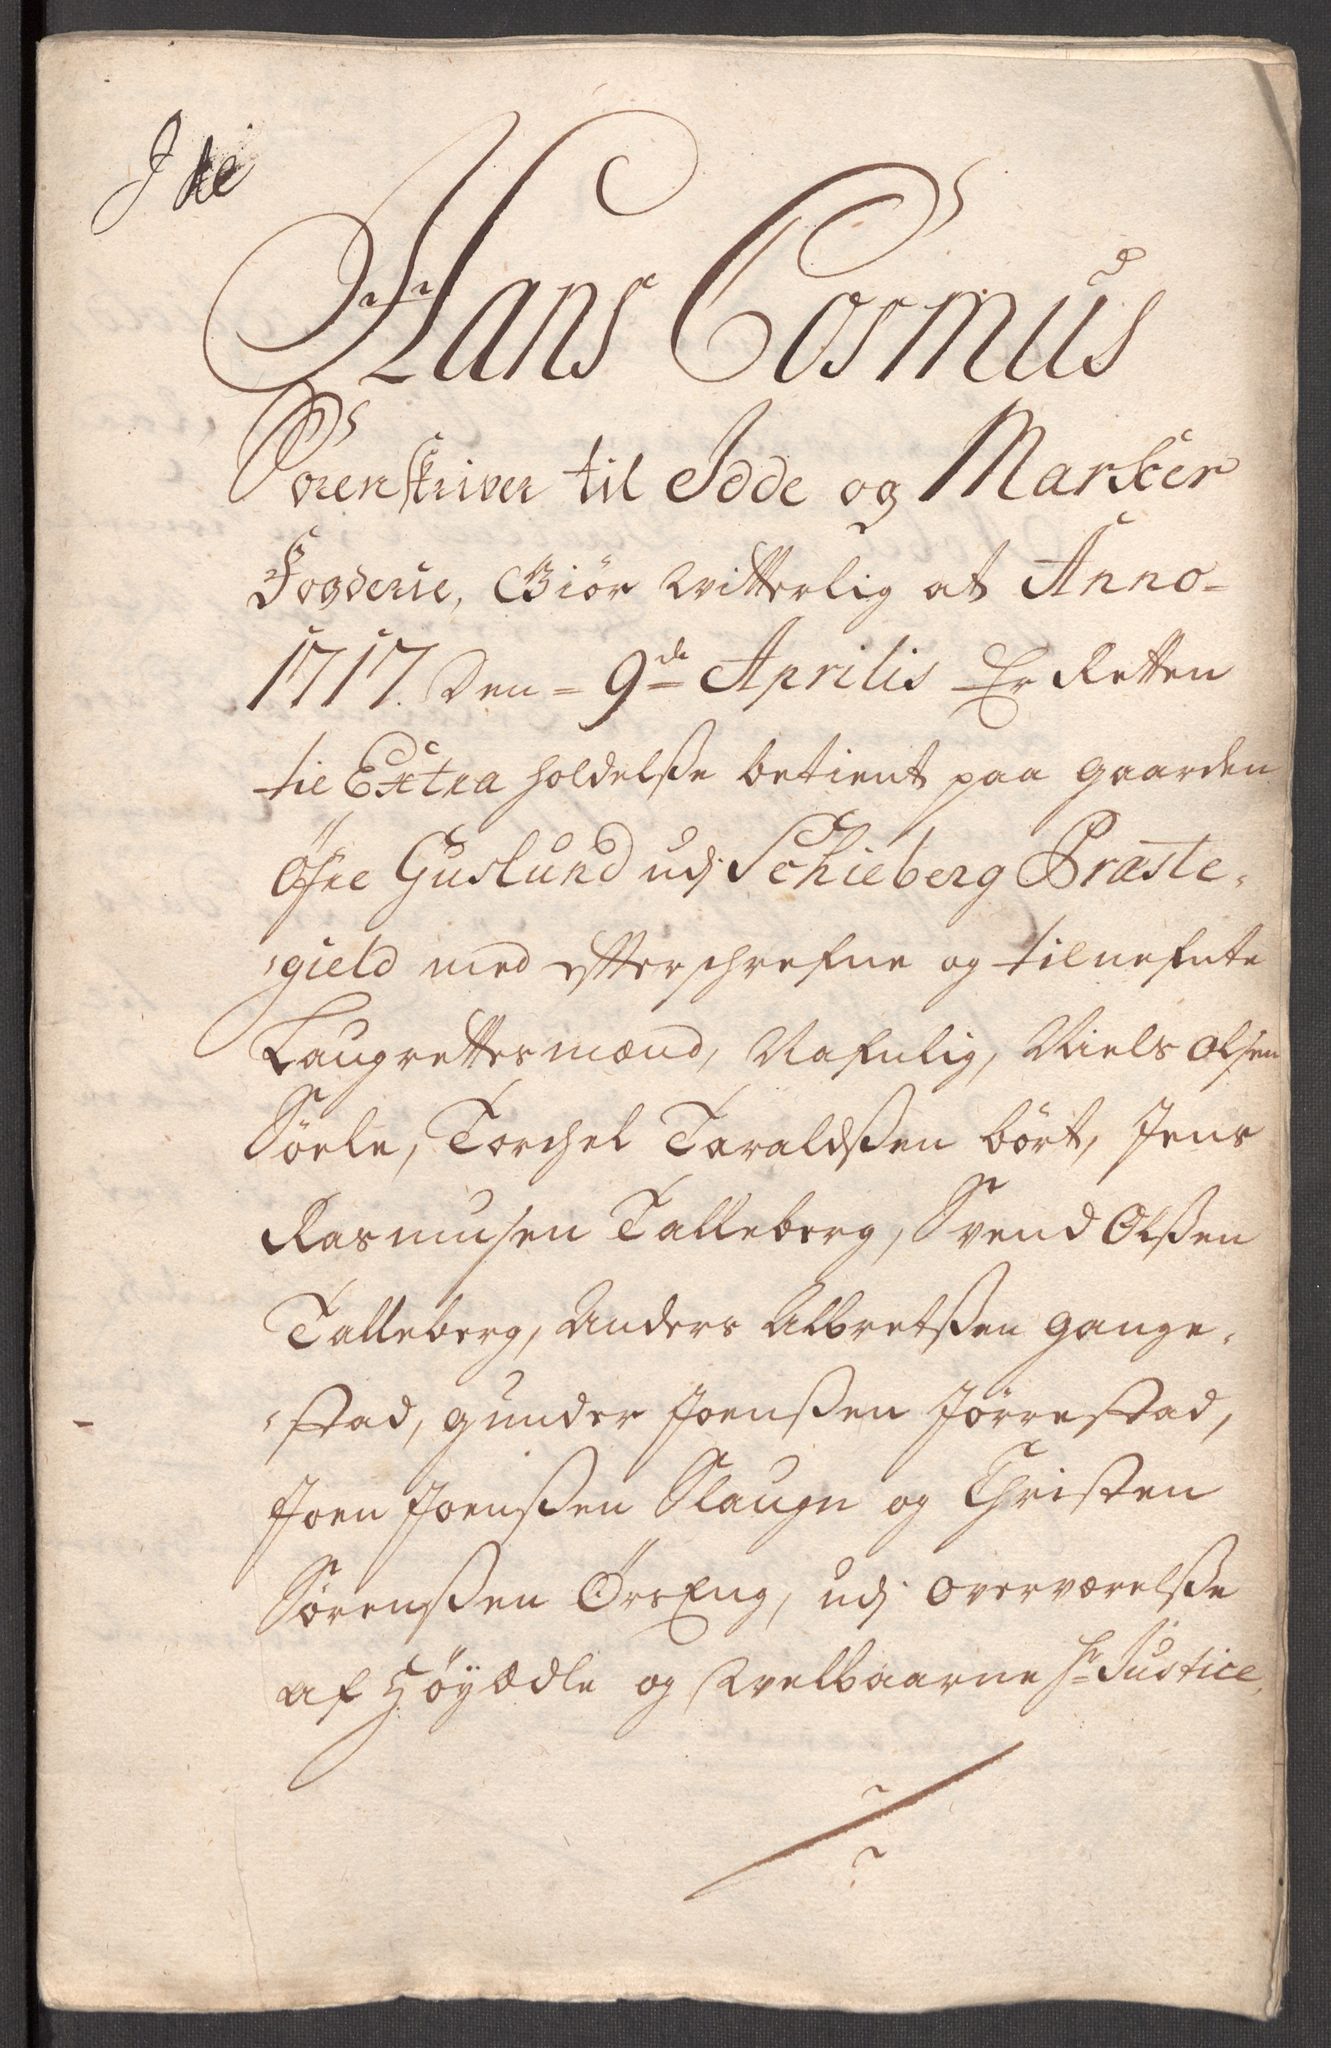 Hans Cosmus
Sorenskriver til Idde og Marker
Fogderie, Giör Witterlig at Anno
1717. Den 9de Aprilis Er Retten
til Extra holdelsse betient paa gaarden
Öfre Guslund udj Schieberg Præste-
gield med efterschrefne og tilnefnte
Laugrettesmænd, Nafnlig, Niels Olsen
Söele, Torchel Taraldssen bört, Jens
Rasmusen Talleberg, Svend Olssen
Talleberg, Anders Albretssen gange-
stad, gunder Joenssen Jörrestad,
Joen Joenssen Slaugn og Christen
Sörenssen ÖrsEng, udj overværelsse
af Höyædle og Welbaarne Hr Justice